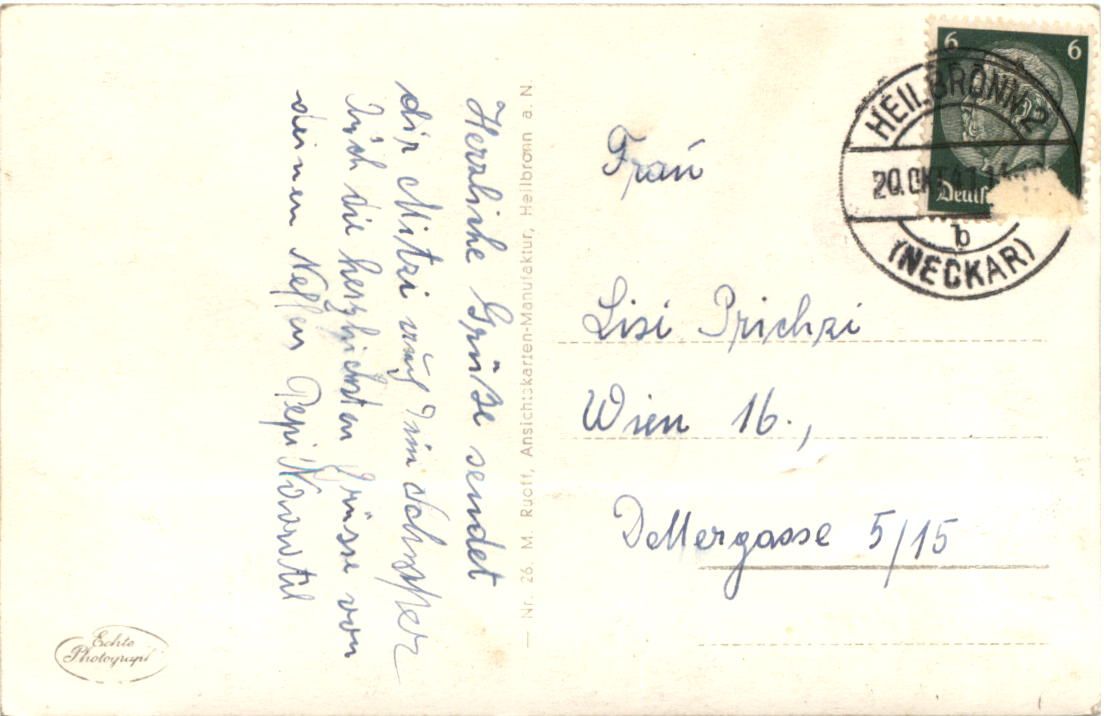 Herzliche Grüße sendet
dir Mitzi und
Auch die herzlichsten Grüsse von
deinen Neffen Pepi
— Nr. 26. M. Ruoff, Ansichtskarten-Manufaktur, Heilbronn a. N
Echte
Photograph
6 6
HEILBRONN 2
20.OKT.41
b
(NECKAR)
Frau
Lisi Prichzi
Wien 16.,
gasse 5/15